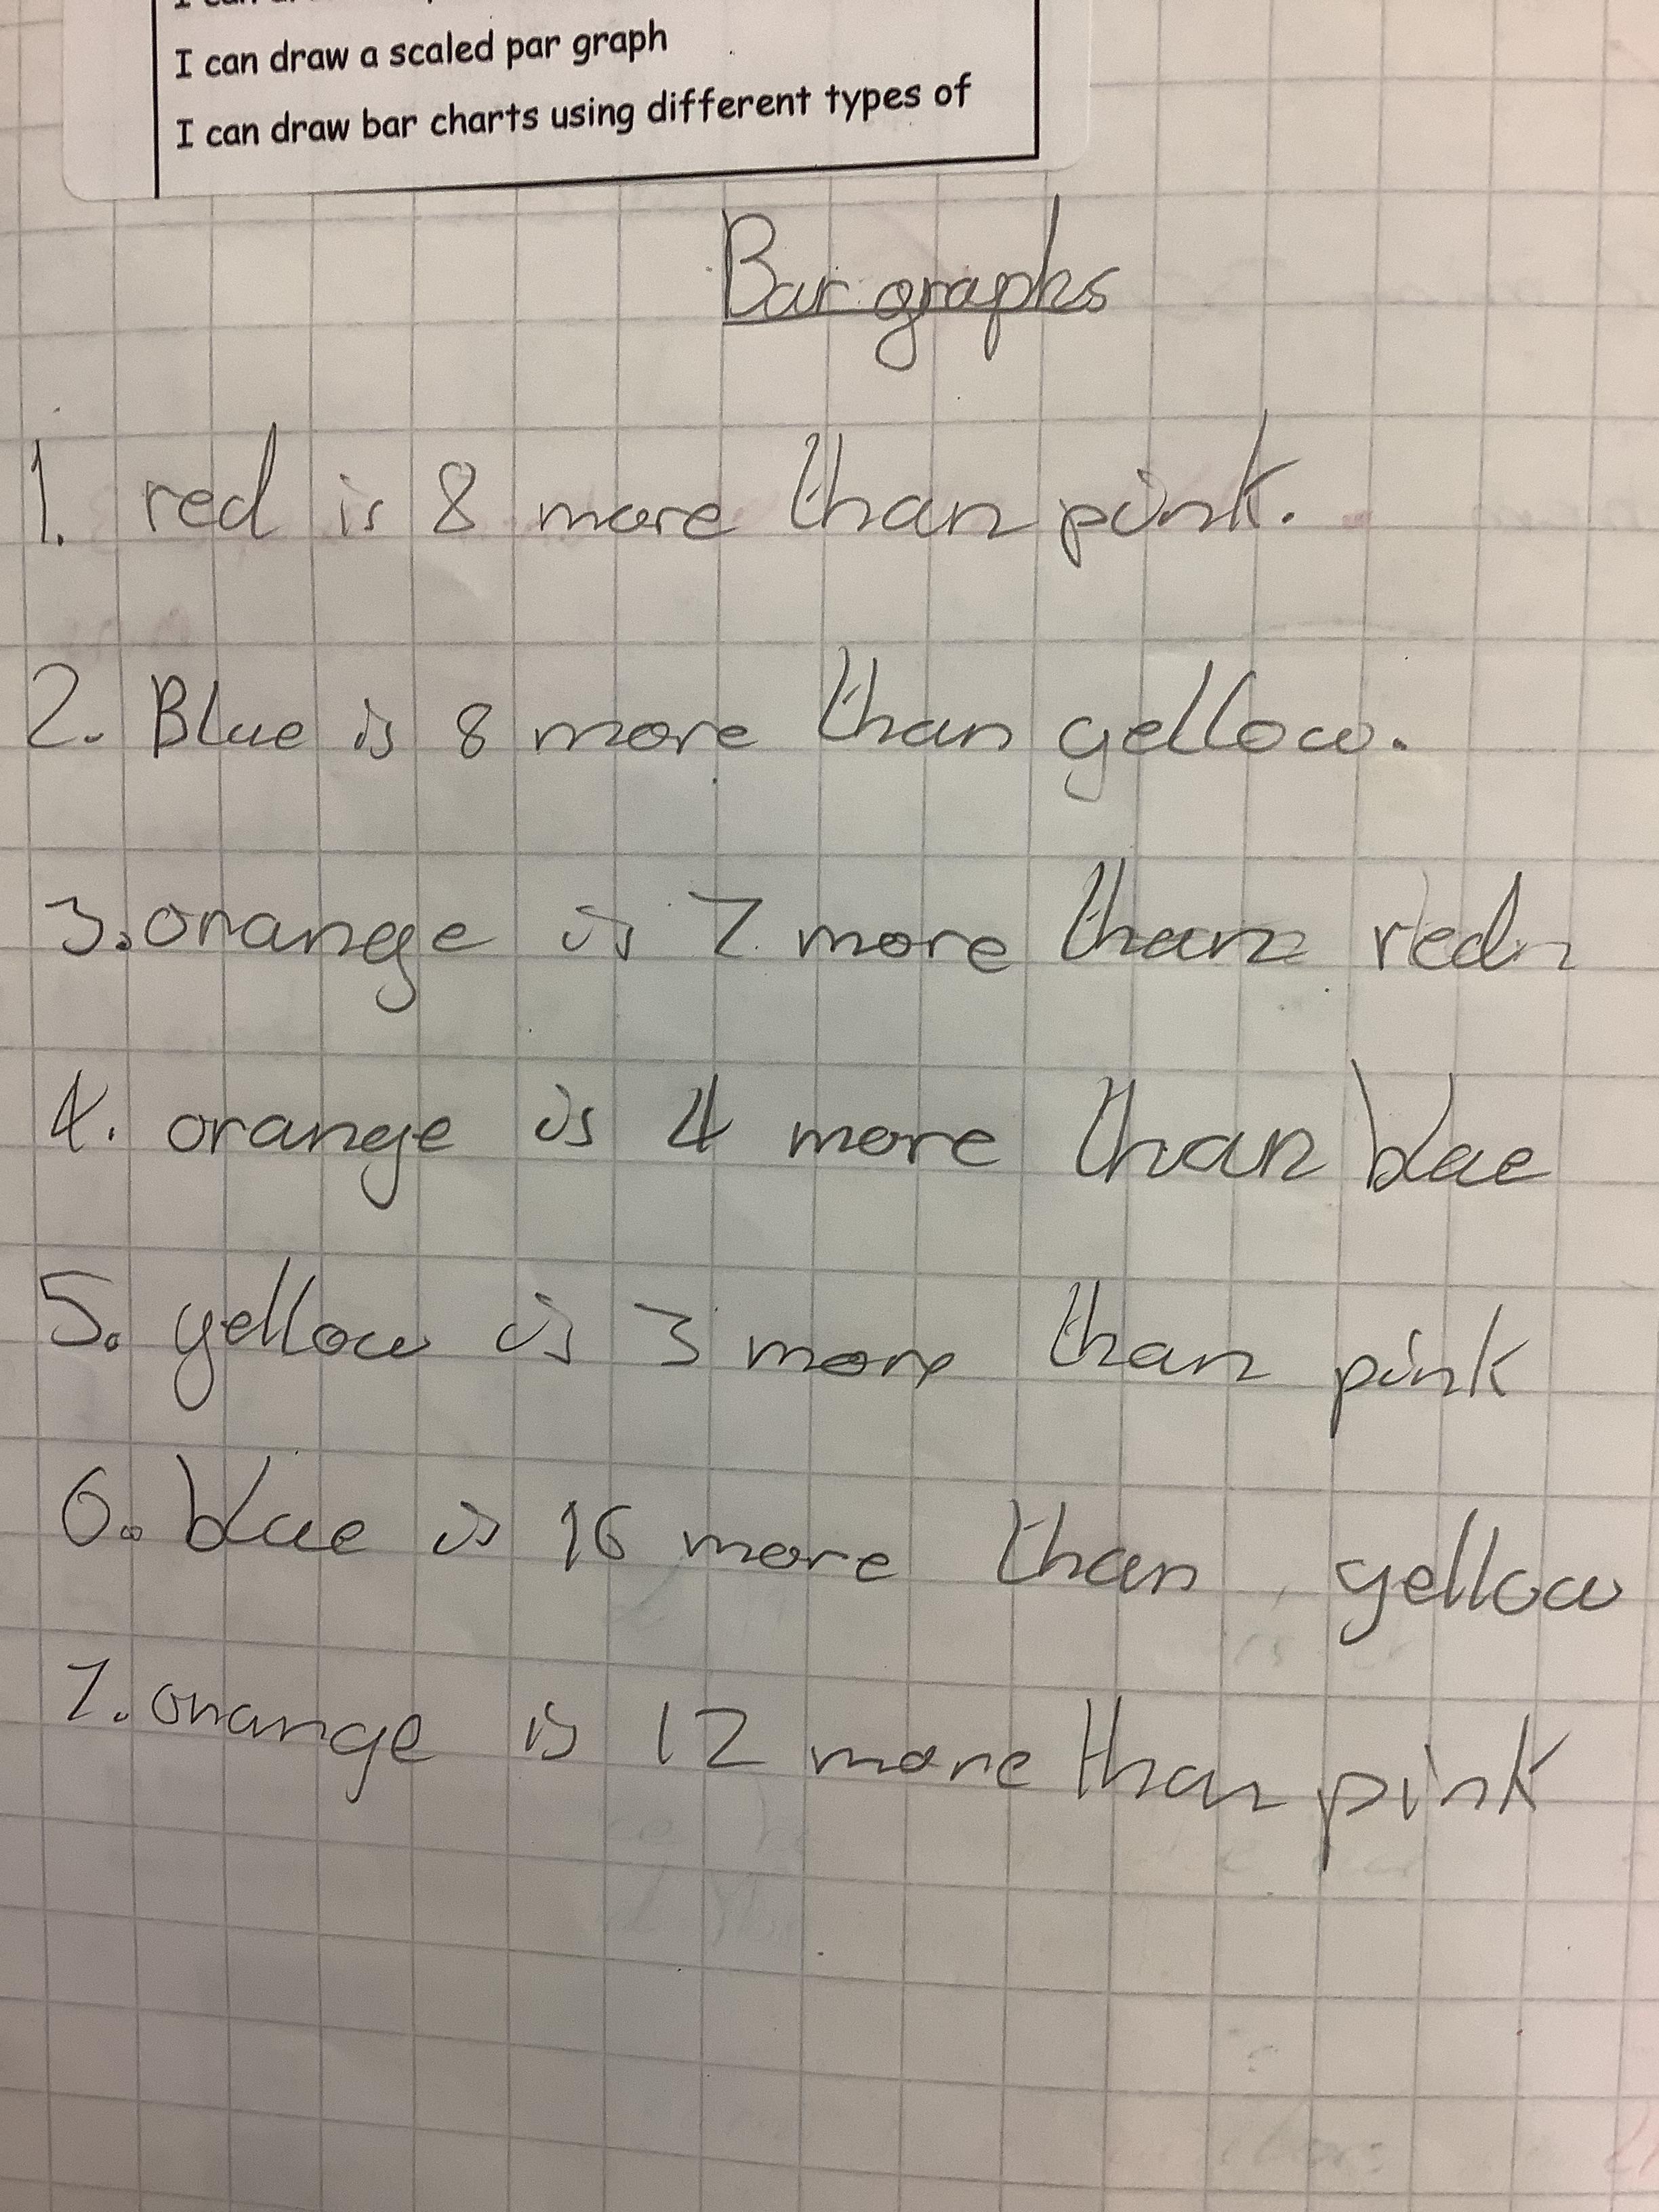 I can draw a scaled par graph
I can draw bar charts using different types of
Bar graphs
1. red is 8 more than pink.
2. Blue is 8 more than yellow.
3. orange is 7 more than red
4. orange is 4 more than blue
5. yellow is 3 more than pink
6. blue is 16 more than yellow
7. orange is 12 more than pink